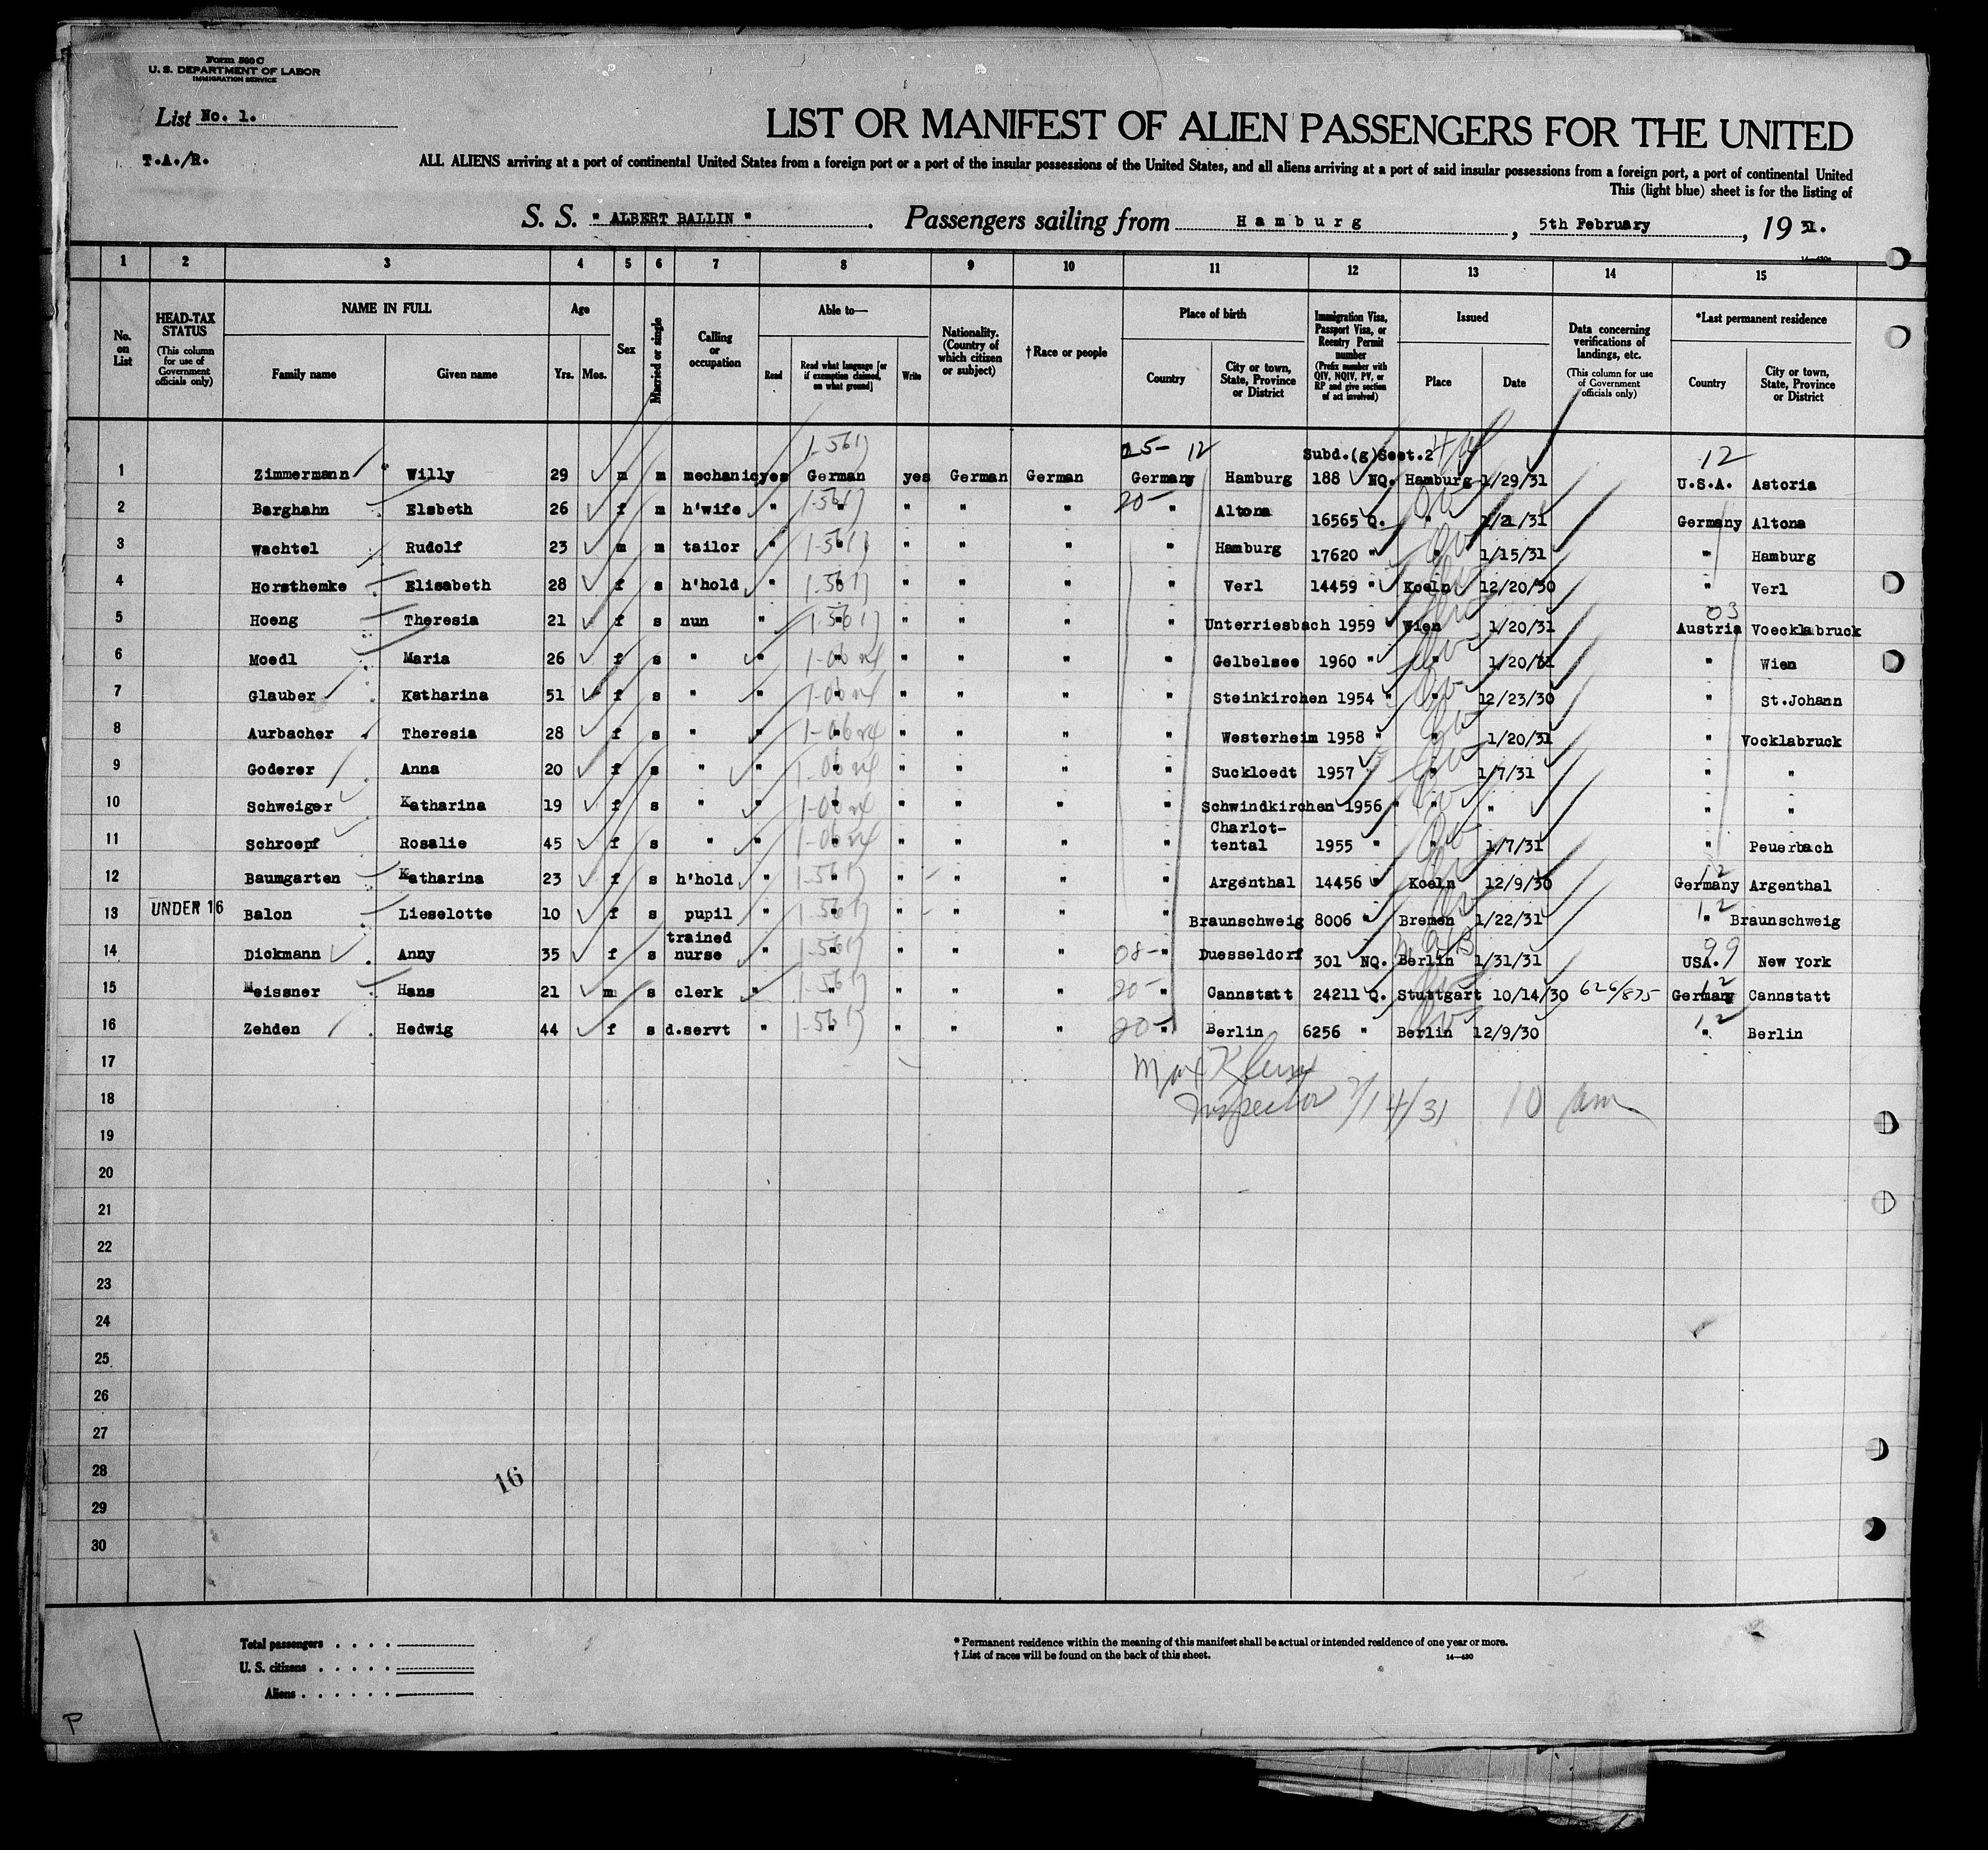 Form 500 C
U. S. DEPARTMENT OF LABOR
IMMIGRATION SERVICE
List No. 1.
T.A./R.
LIST OR MANIFEST OF ALIEN PASSENGERS FOR THE UNITED
ALL ALIENS arriving at a port of continental United States from a foreign port or a port of the insular possessions of the United States, and all aliens arriving at a port of said insular possessions from a foreign port, a port of continental United
This (light blue) sheet is for the listing of
S. S. " ALBERT BALLIN " . Passengers sailing from Hamburg , 5th February , 19 31.
1 2 3 4 5 6 7 8 9 10 11 12 13 14 15
No. on List
HEAD-TAX STATUS (This column for use of Government officials only)
NAME IN FULL Family name Given name
Age Yrs. Mos.
Sex
Married or single
Calling or occupation
Able to— Read Read what language [or if exemption claimed, on what ground] Write
Nationality. (Country of which citizen or subject)
† Race or people
Place of birth Country City or town, State, Province or District
Immigration Visa, Passport Visa, or Reentry Permit number (Prefix number with QIV, NQIV, PV, or RP and give section of act involved)
Issued Place Date
Data concerning verifications of landings, etc. (This column for use of Government officials only)
*Last permanent residence Country City or town, State, Province or District
25- 12 Subd.(g)Sect.2 12
1 Zimmermann Willy 29 m m mechanic yes German yes German German Germany Hamburg 188 NQ. Hamburg 1/29/31 U.S.A. Astoria
2 Barghahn Elsbeth 26 f m h'wife " " " " " 20- " Altona 16565 Q. " 1/21/31 Germany Altona
3 Wachtel Rudolf 23 m m tailor " " " " " " Hamburg 17620 " " 1/15/31 " Hamburg
4 Horsthemke Elisabeth 28 f s h'hold " " " " " " Verl 14459 " Koeln 12/20/30 " Verl
03
5 Hoeng Theresia 21 f s nun " " " " " " Unterriesbach 1959 Wien 1/20/31 Austria Voecklabruck
6 Moedl Maria 26 f s " " " " " " " Gelbelsee 1960 " " 1/20/31 " Wien
7 Glauber Katharina 51 f s " " " " " " " Steinkirchen 1954 " " 12/23/30 " St.Johann
8 Aurbacher Theresia 28 f s " " " " " " " Westerheim 1958 " " 1/20/31 " Vocklabruck
9 Goderer Anna 20 f s " " " " " " " Suckloedt 1957 " " 1/7/31 " "
10 Schweiger Katharina 19 f s " " " " " " " Schwindkirchen 1956 " " " " "
11 Schroepf Rosalie 45 f s " " " " " " " Charlot-tental 1955 " " 1/7/31 " Peuerbach
12 Baumgarten Katharina 23 f s h'hold " " " " " " Argenthal 14456 " Koeln 12/9/30 Germany Argenthal
13 UNDER 16 Balon Lieselotte 10 f s pupil " " " " " " Braunschweig 8006 " Bremen 1/22/31 " Braunschweig
14 Dickmann Anny 35 f s trained nurse " " " " " 08- " Duesseldorf 301 NQ. Berlin 1/31/31 USA. 99 New York
15 Meissner Hans 21 m s clerk " " " " " 20- " Cannstatt 24211 Q. Stuttgart 10/14/30 626/875 Germany Cannstatt
16 Zehden Hedwig 44 f s d.servt " " " " " 20- " Berlin 6256 " Berlin 12/9/30 " Berlin
17
18 Inspector 2/14/31 10 am
19
20
21
22
23
24
25
26
27
28
29
30
16
Total passengers
U. S. citizens
Aliens
* Permanent residence within the meaning of this manifest shall be actual or intended residence of one year or more.
† List of races will be found on the back of this sheet. 14—430
P